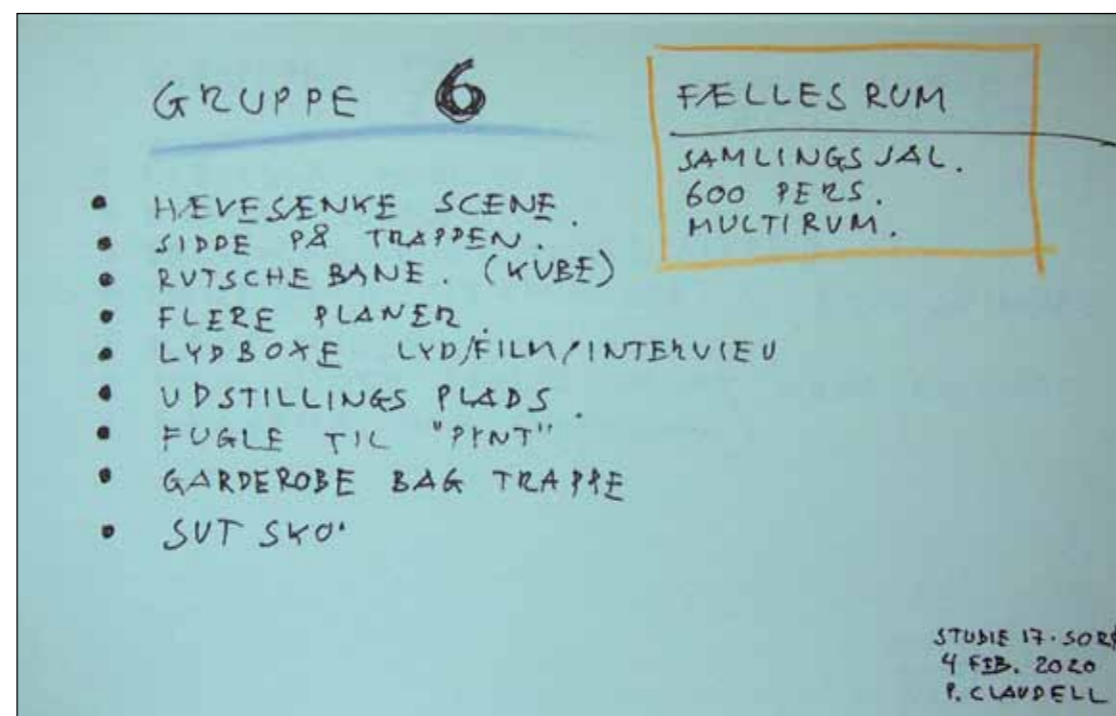 GRUPPE 6
FÆLLES RUM
SAMLINGS SAL.
600 PERS.
MULTIRUM.
• HÆVESÆNKE SCENE.
• SIDDE PÅ TRAPPEN.
• RUTSCHE BANE. (KUBE)
• FLERE PLANER.
• LYDBOXE LYD/FILM/INTERVIEU
• UDSTILLINGS PLADS.
• FUGLE TIL "PYNT"
• GARDEROBE BAG TRAPPE
• SUT SKO
STUDIE 17. SORØ
4 FEB. 2020
P. CLAUDELL